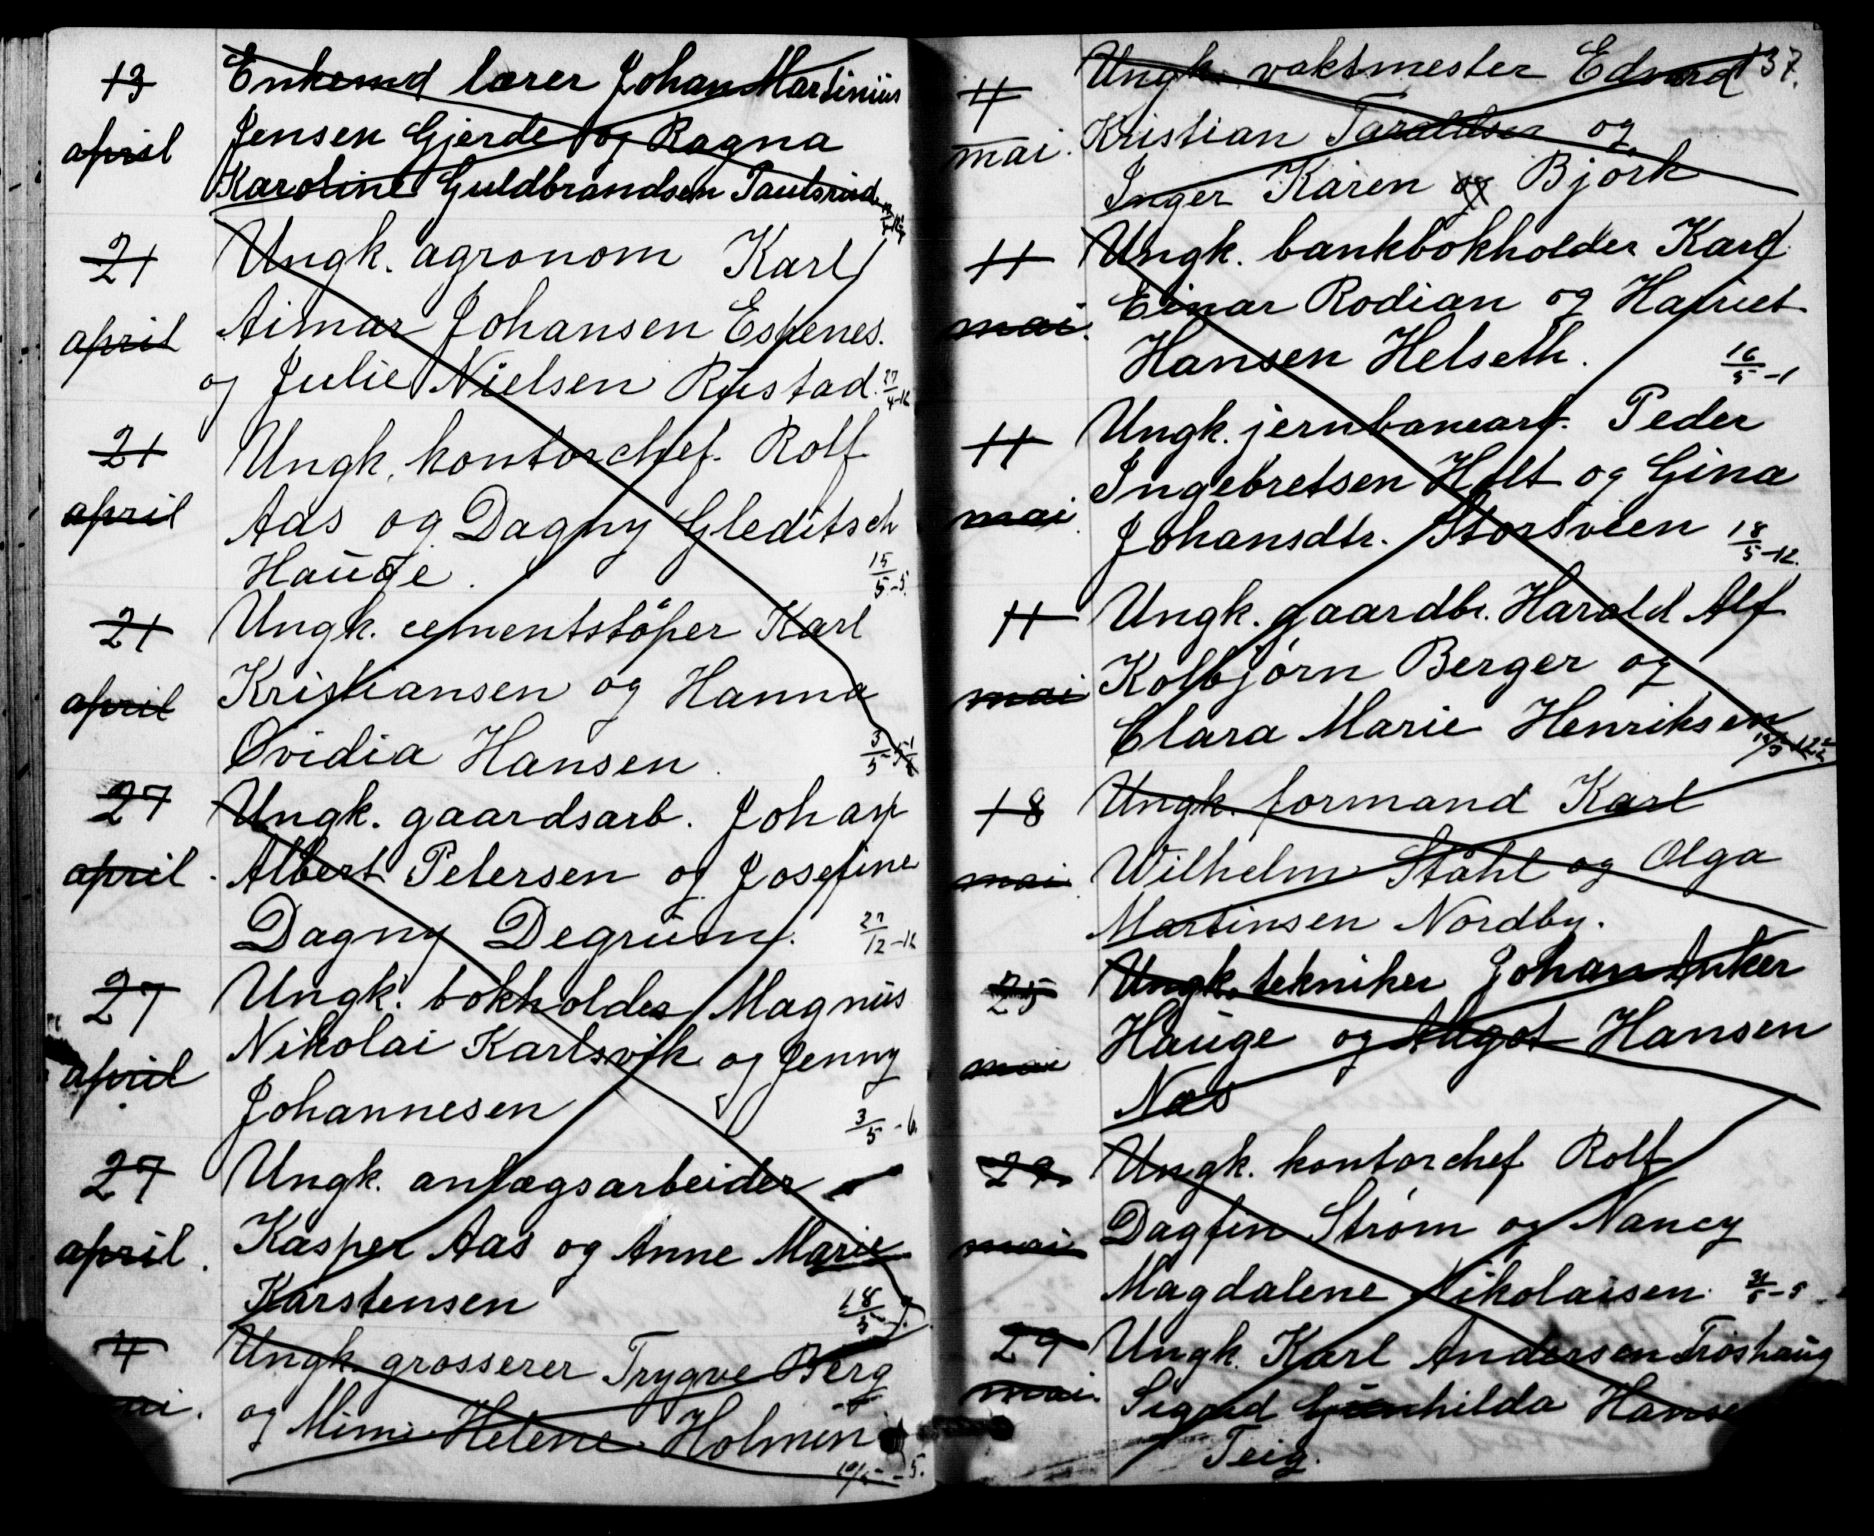 13 Enkemd lærer Johan Martinius
april Jensen Gjerde og Ragna
Karoline Guldbrandsen Paulsrud
21 Ungk. agronom Karl
april Aimar Johansen Espenes.
og Julie Nielsen Rustad. 27/4-12
21 Ungk. kontorchef. Rolf
april Aas og Dagny Gleditsch
Hauge. 15/5-5.
21 Ungk. cementstöper Karl
april Kristiansen og Hanna
Ovidia Hansen. 3/5
27 Ungk. gaardsarb. Johan
april. Albert Petersen og Josefine
Dagny Degrum. 27/12-12
27 Ungk. bokholder Magnus
april Nikolai Karlsvik og Jenny
Johannesen 3/5-6.
27 Ungk. anlægsarbeider
april. Kasper Aas og Anne Marie
Karstensen 18/5
4 Ungk. grosserer Trygve Berg
og Mimi Helene Holmen
10/5-5.
137.
4 Ungk. vaktmester Edvard
mai. Kristian Taraldsen og
Inger Karen og Björk
11 Ungk. bankbokholder Karl
mai. Einar Rodian og Harriet
Hansen Helseth. 16/5-1
11 Ungk. jernbanearb. Peder
mai Ingebretsen Holt og Gina
Johansdtr. Storsveen 18/5-12.
11 Ungk. gaardbr. Harald Alf
mai Kolbjørn Berger og
Clara Marie Henriksen
18 Ungk. formand Karl
mai Wilhelm Ståhl og Olga
Martinsen Nordby.
25 Ungk. tekniker Johan Anker
mai Hauge og Aagot Hansen
Næs
29 Ungk. kontorchef Rolf
mai Dagfin Strøm og Nancy
Magdalene Nikolaisen. 31/5-5
29 Ungk. Karl Andersen Troshaug
mai. Sigrid Gunhilda Hansen
Teig.